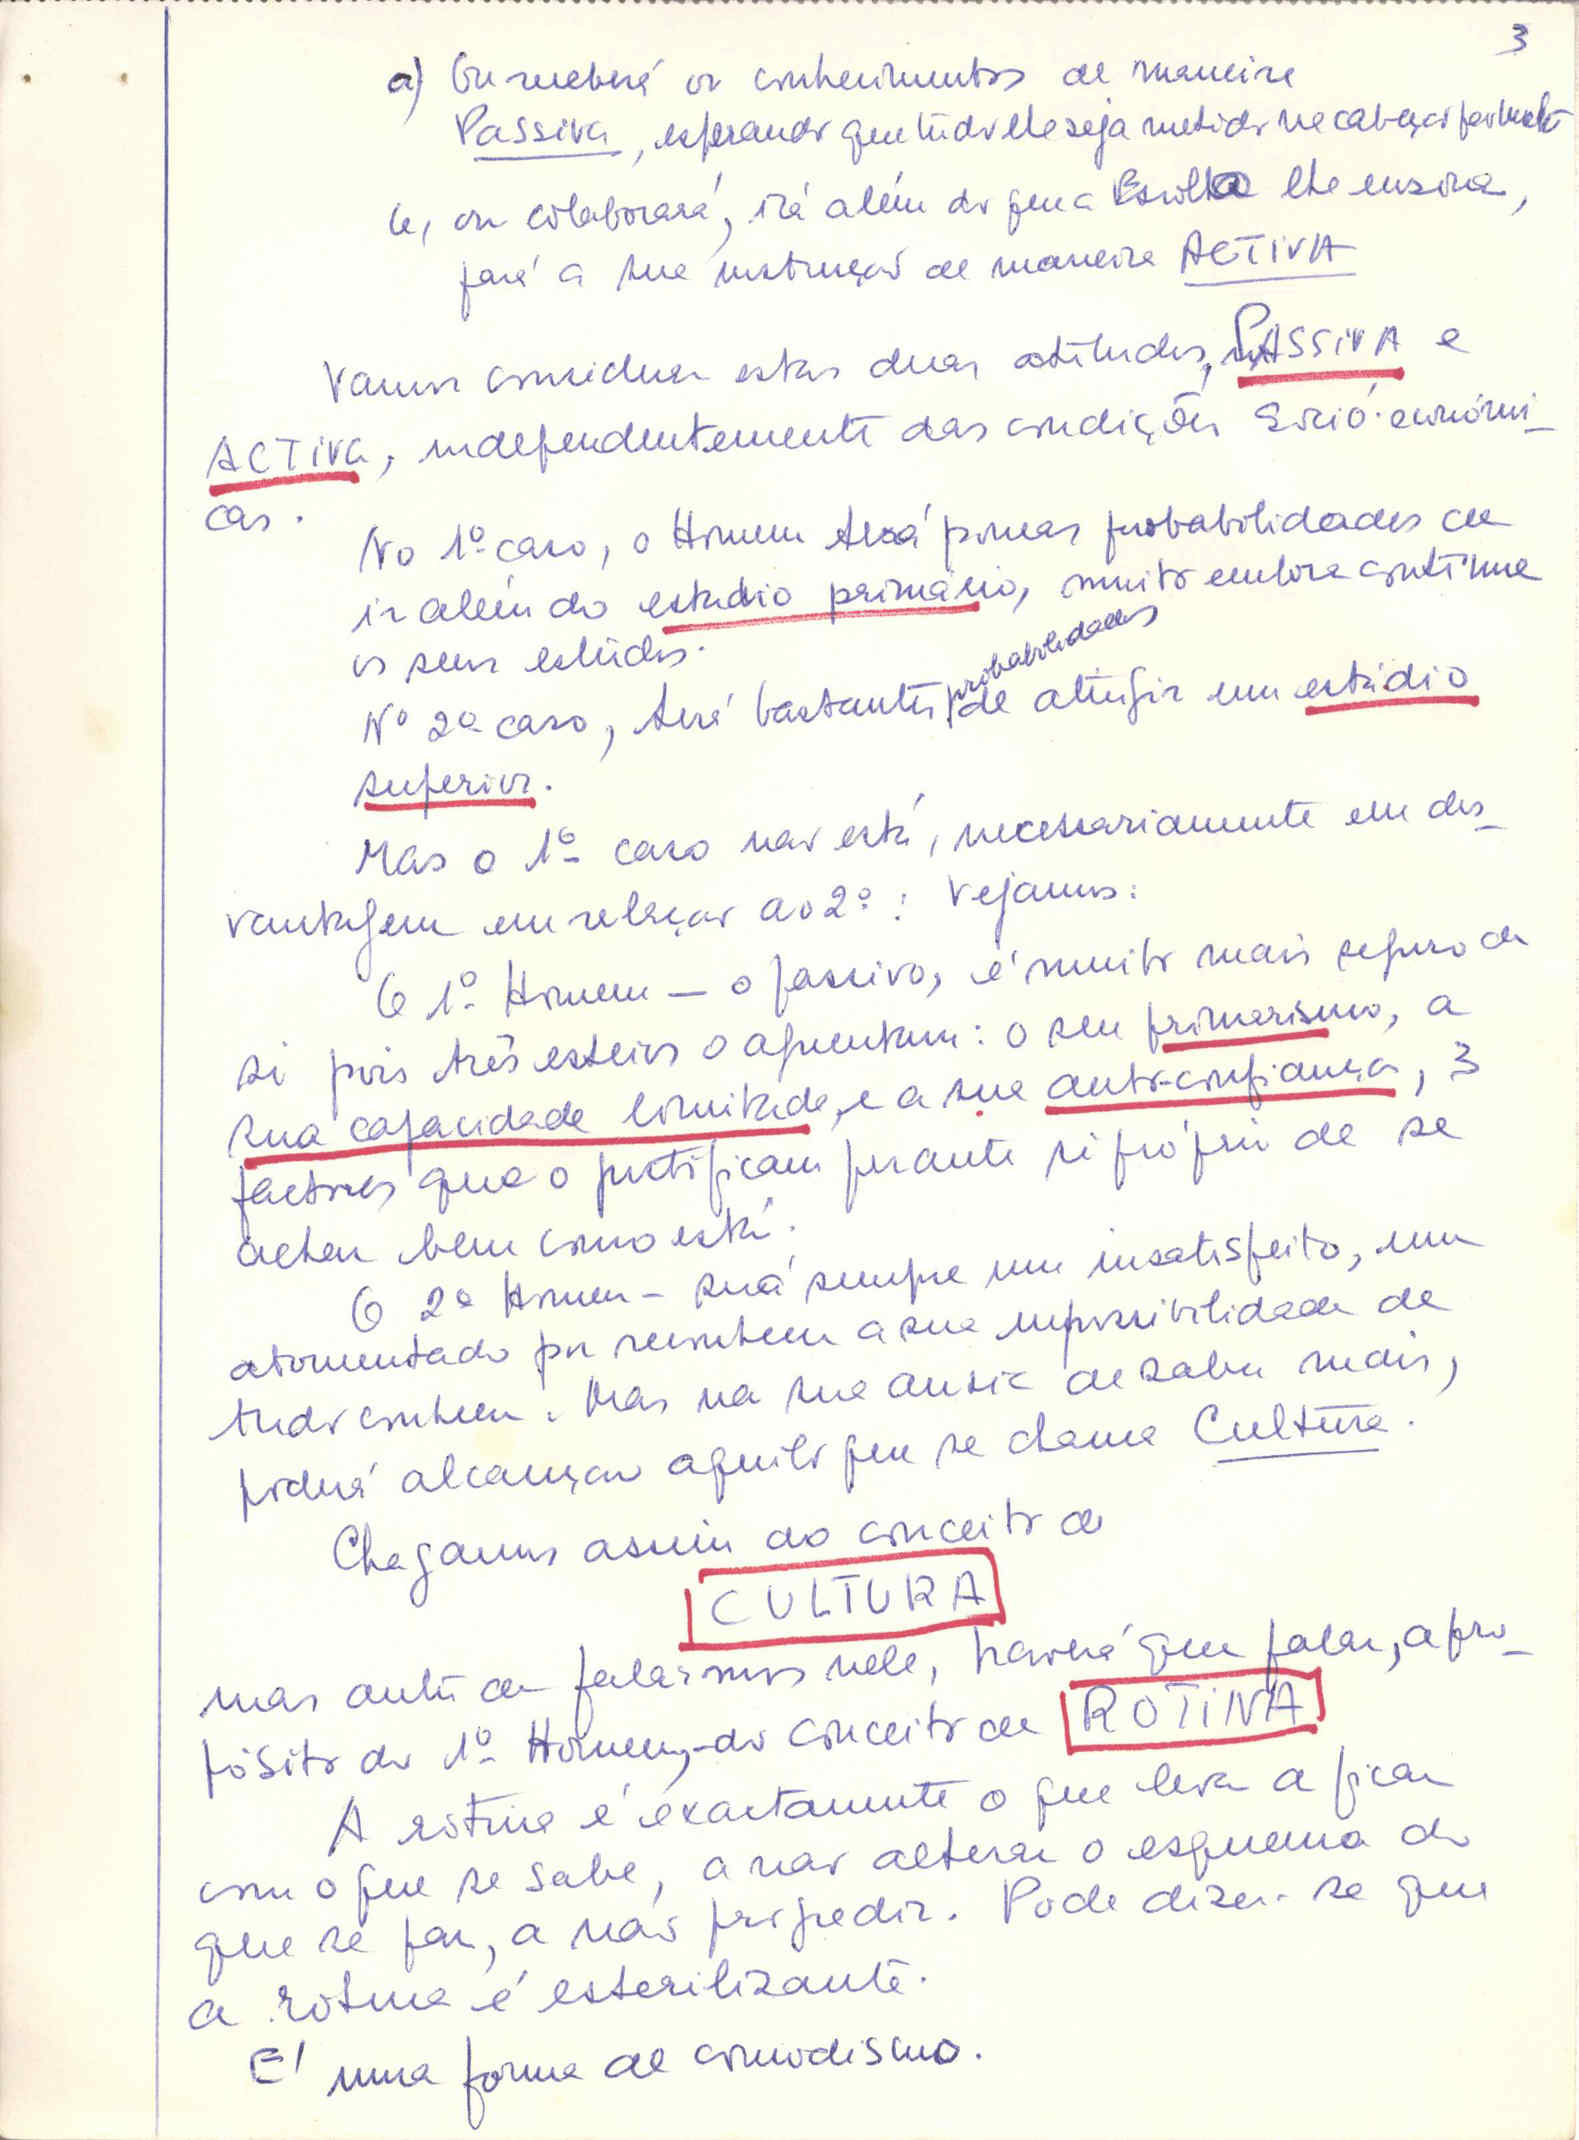 3
a) Ou receberá os conhecimentos de maneira
Passiva, esperando que tudo lhe seja metido na cabeça
b, ou colaborará, irá além do que a Escola lhe ensina,
fará a sua instrução de maneira ACTIVA
Vamos considerar estas duas atitudes, PASSIVA e
ACTIVA, independentemente das condições sócio-económi-
cas.
No 1º caso, o Homem terá poucas probabilidades de
ir além do estadio primário, muito embora continue
os seus estudos.
Nº 2º caso, terá bastantes probabilidades de atingir um estádio
superior.
Mas o 1º caso nao está, necessariamente em des-
vantagem em relaçao ao 2º: Vejamos:
O 1º Homem — o passivo, é muito mais seguro de
si pois três esteios o aguentam: o seu primarismo, a
sua capacidade limitada, e a sua auto-confiança, 3
factores que o justificam perante si próprio de se
achar bem como está.
O 2º Homem - será sempre um insatisfeito, um
atormentado por reconhecer a sua impossibilidade de
tudo conhecer. Mas na sua ansia de saber mais,
poderá alcançar aquilo que se chama Cultura.
Chegamos assim ao conceito de
CULTURA
mas antes de falarmos nele, haverá que falar, a pro-
pósito do 1º Homem, - do conceito de ROTINA
A rotina é exactamente o que leva a ficar
com o que se sabe, a nao alterar o esquema do
que se faz, a não progredir. Pode dizer-se que
a rotina é esterilizante.
E' uma forma de comodismo.